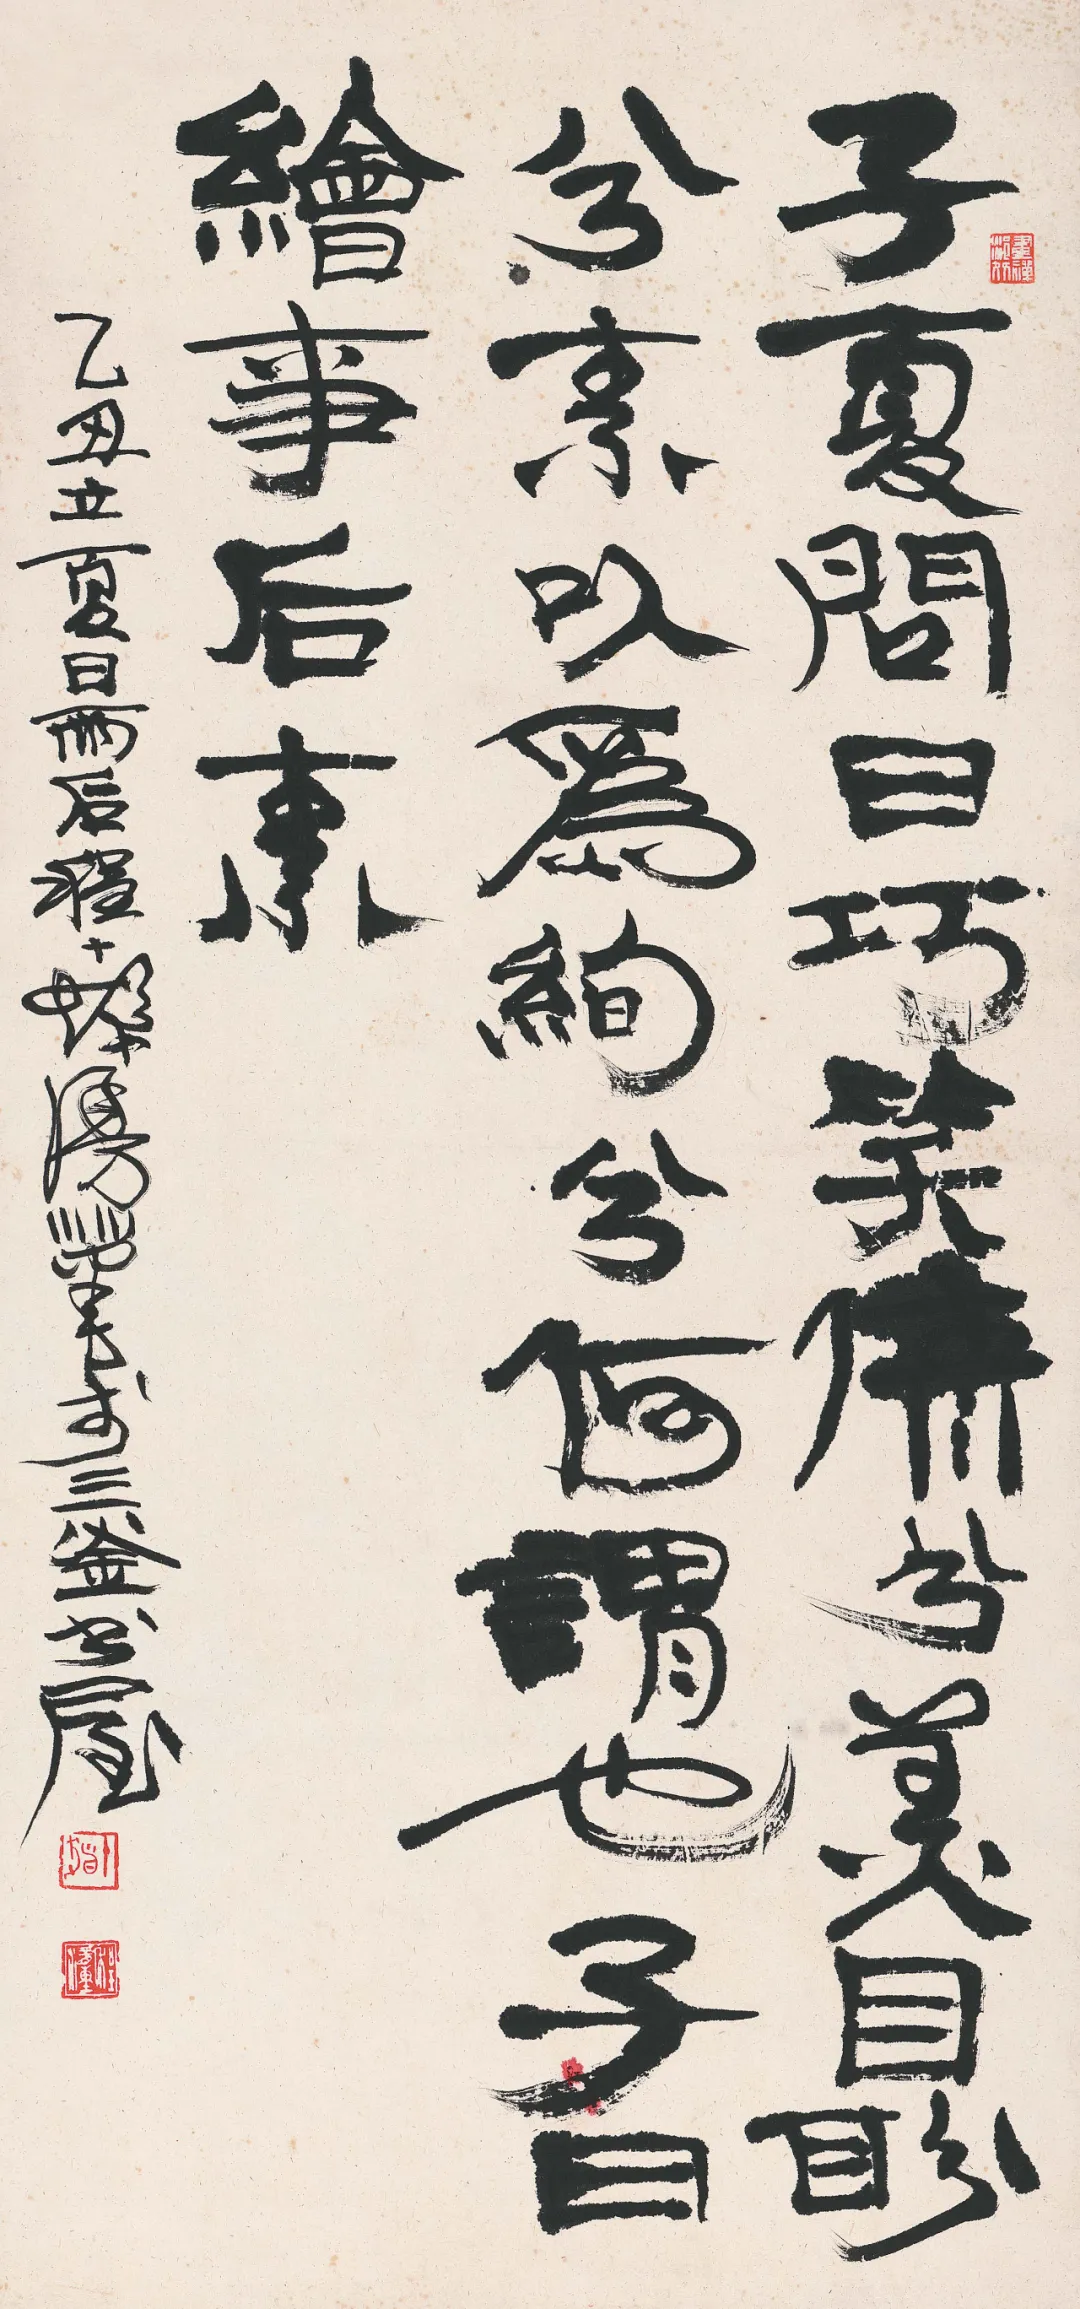 子夏問曰巧笑倩兮美目盼
兮素以爲絢兮何謂也子曰
繪事后素
乙丑立夏日雨后程十髮漫筆于三釜書屋